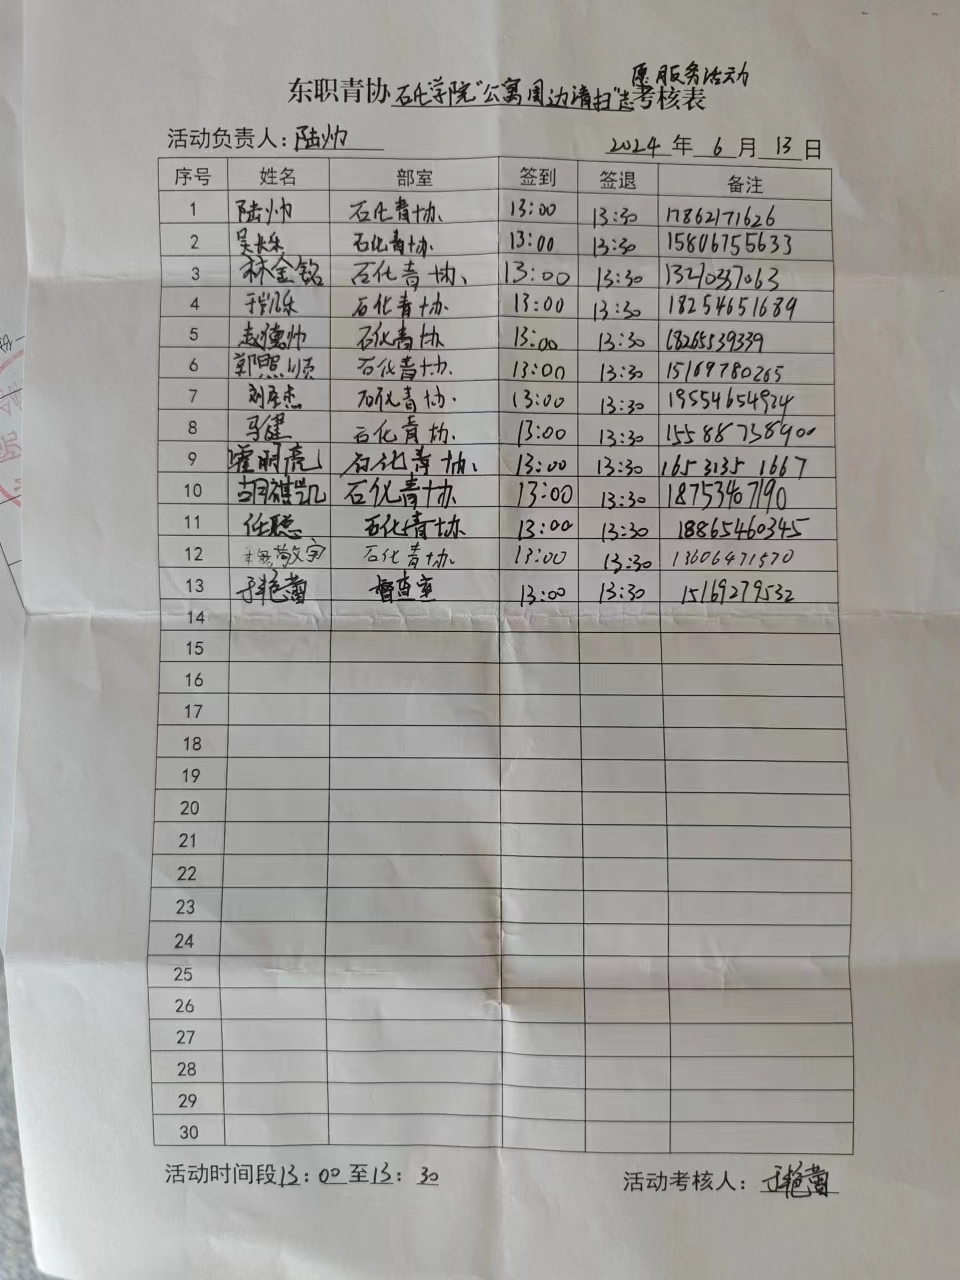 愿服务活动
东职青协石化学院"公寓周边清扫"志考核表
活动负责人：陆帅 2024年6月13日
序号 姓名 部室 签到 签退 备注
1 陆帅 石化青协 13:00 13:30 17862171626
2 吴长乐 石化青协 13:00 13:30 15806755633
3 林金铭 石化青协 13:00 13:30
4 于凯乐 石化青协 13:00 13:30 18254651689
5 赵德帅 石化青协 13:00 13:30 18265539339
6 郭照顺 石化青协 13:00 13:30 15169780265
7 杰 石化青协 13:00 13:30 19554654924
8 马健 石化青协 13:00 13:30
9 霍明亮 石化青协 13:00 13:30 1653135 1667
10 胡祺凯 石化青协 13:00 13:30 18753407190
11 任聪 石化青协 13:00 13:30 18865460345
12 石化青协 13:00 13:30 13606471570
13 于艳蕾 督查室 13:00 13:30 15169279532
14
15
16
17
18
19
20
21
22
23
24
25
26
27
28
29
30
活动时间段13：00至13：30 活动考核人：于艳蕾